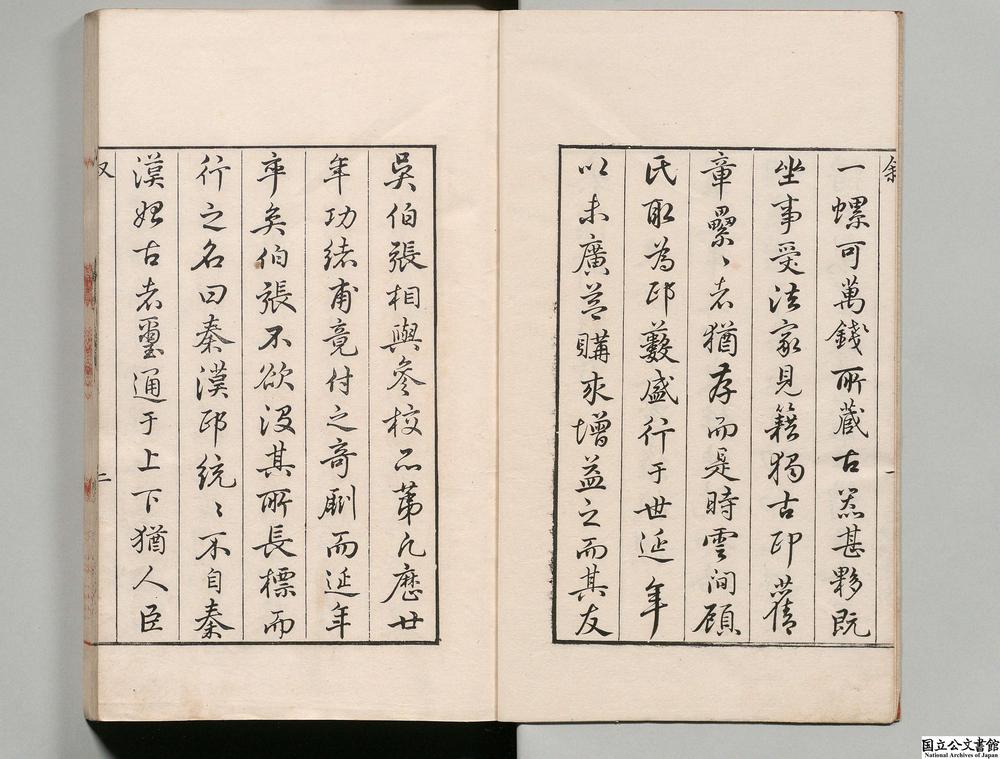 一螺可萬錢所藏古器甚夥既
坐事受法家見籍獨古印舊
章纍〻者猶存而是時雲間顧
氏耴為印藪盛行于世延年
以未廣益購求增益之而其友
吳伯張相與參校品第凡歷廿
年功緒甫竟付之奇劂而延年
卒矣伯張不欲沒其所長標而
行之名曰秦漢印統〻不自秦
漢始古者璽通于上下猶人臣
敘
一
二
国立公文書館
National Archives of Japan